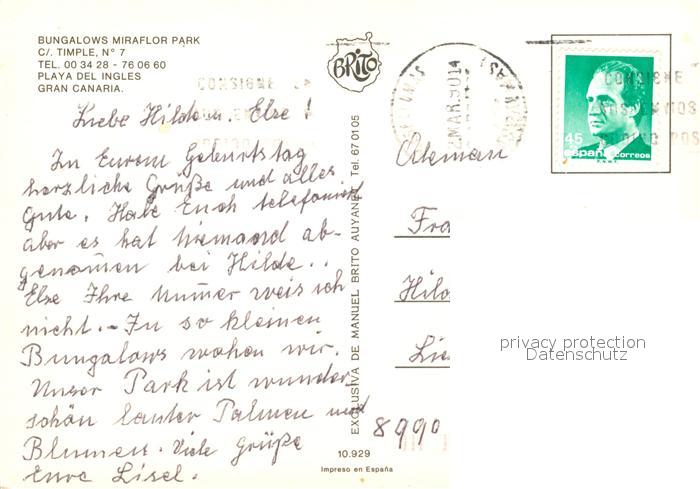 BUNGALOWS MIRAFLOR PARK
C/. TIMPLE, N° 7
TEL. 00 34 28 - 76 06 60
PLAYA DEL INGLES
GRAN CANARIA.
Liebe Hilde u. Else !
Zu Eurem Geburtstag
herzliche Grüße und alles
Gute. Habe Euch telefoniert
aber es hat niemand ab-
genomen bei Hilde..
Else Ihre Numer weis ich
nicht. - In so kleinen
Bungalows wohen wir.
Unser Park ist wunder
schön lauter Palmen und
Blumen. Viele Grüße
Eure Lisel.
BRITO
EXCLUSIVA DE MANUEL BRITO AUYANET Tel. 67 01 05
10.929
Impreso en España
2 MAR. 90 14
CONSIGNE
45
españa correos
Aleman
Fra
Hild
Lie
8990
privacy protection
Datenschutz